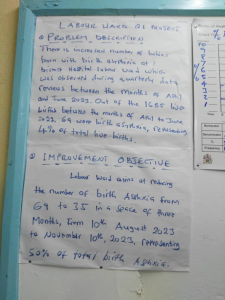 LABOUR WARD QI PROJECT
PROBLEM DESCRIPTION
There is increased number of babies
born with birth asphyxia at
district Hospital labour ward which
was observed during quarterly data
reviews between the months of April
and June 2023. Out of the 1685 live
births between the months of April to June
2023, 69 were birth asphyxia, representing
4% of total live births.
IMPROVEMENT OBJECTIVE
Labour ward aims at reducing
the number of birth Asphyxia from
69 to 35 in a space of three
Months, from 10th August 2023
to November 10th, 2023, representing
50% of total birth Asphyxia.
10
9
8
7
6
5
4
3
2
1